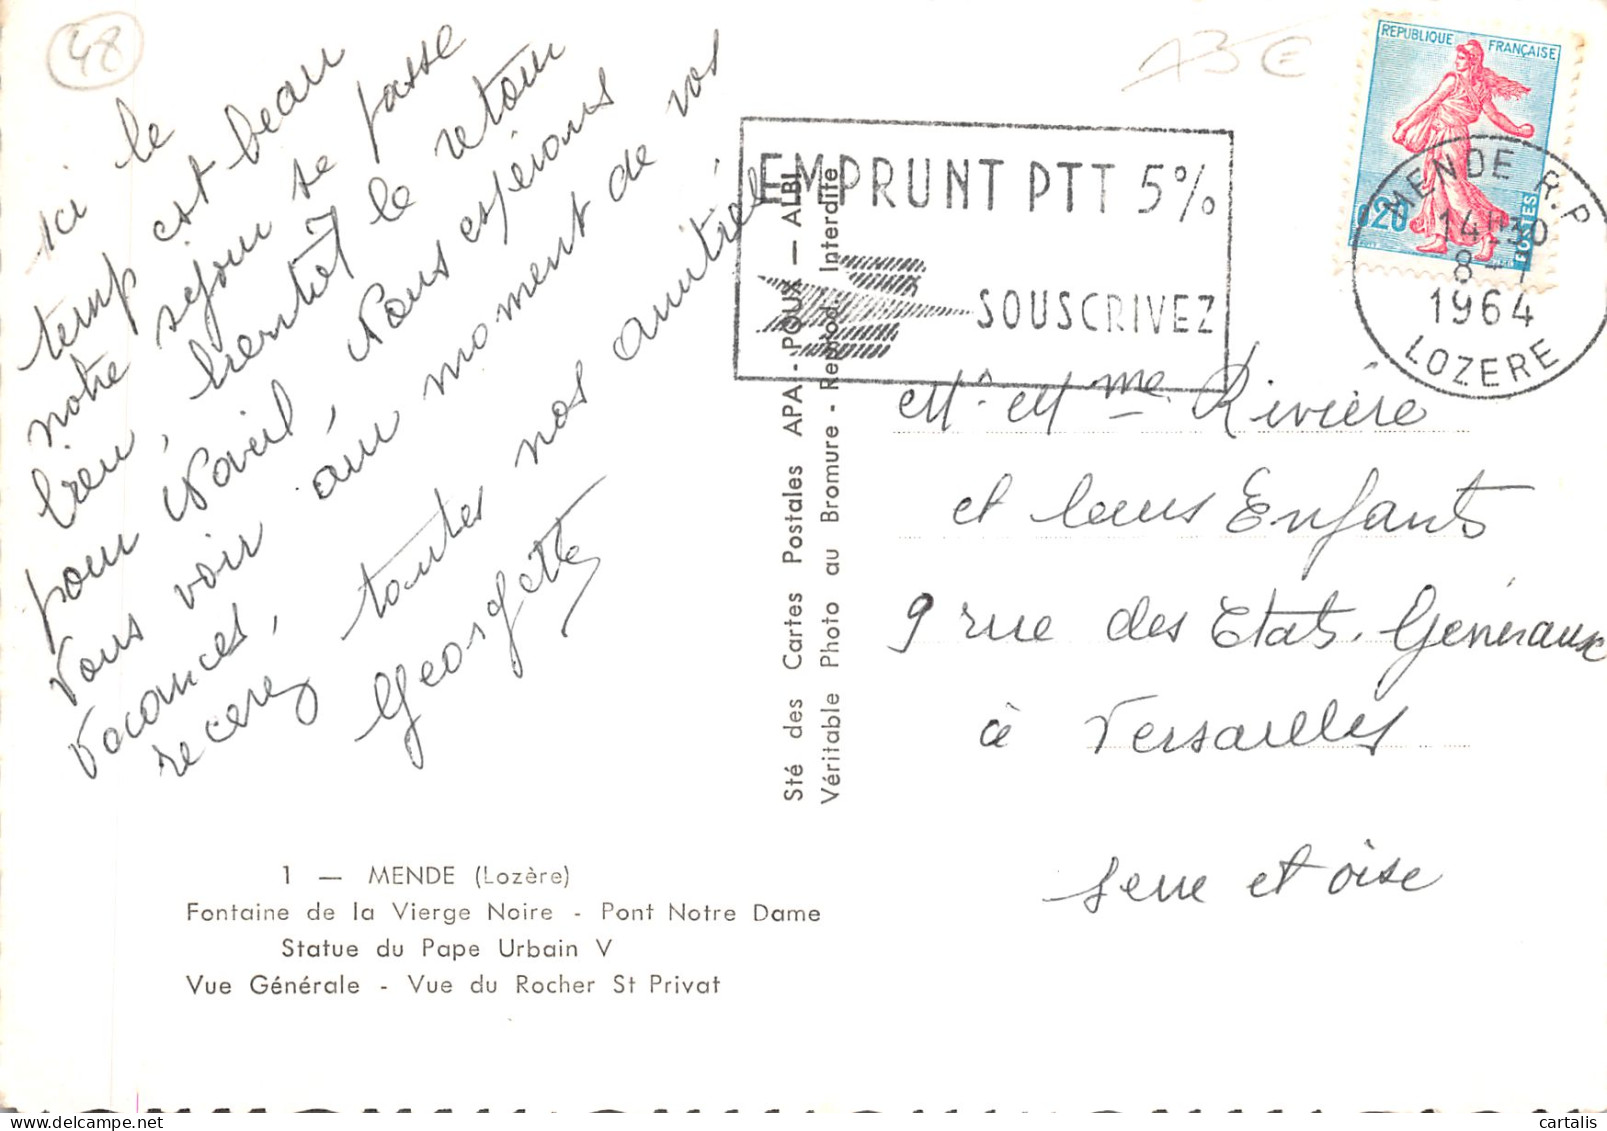 48
A3 €
ici le
temp est beau
notre séjour se passe
bien, bientôt le retour
pour Paris, Nous espérons
vous voir au moment de vos
vacances, toutes nos amitiés
recevez
Georgette
REPUBLIQUE FRANÇAISE
0,20
POSTES
EMPRUNT PTT 5%
SOUSCRIVEZ
MENDE R.P
14H30
8-7
1964
LOZERE
Sté des Cartes Postales APA - POUX — ALBI
Véritable Photo au Bromure - Reprod. Interdite
Mr Mme Rivière
et leurs Enfants
9 rue des Etats. Généraux
à Versailles
seine et oise
1 — MENDE (Lozère)
Fontaine de la Vierge Noire - Pont Notre Dame
Statue du Pape Urbain V
Vue Générale - Vue du Rocher St Privat
delcampe.net
cartalis